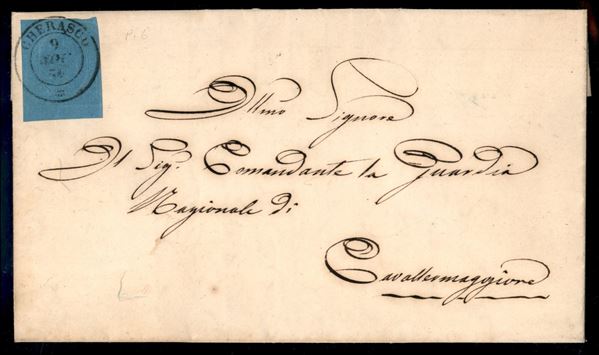 CHERASCO
9
NOV
P. 6
Illmo Signore
Il Sig.r Comandante la Guardia
Nazionale di
Cavallermaggiore